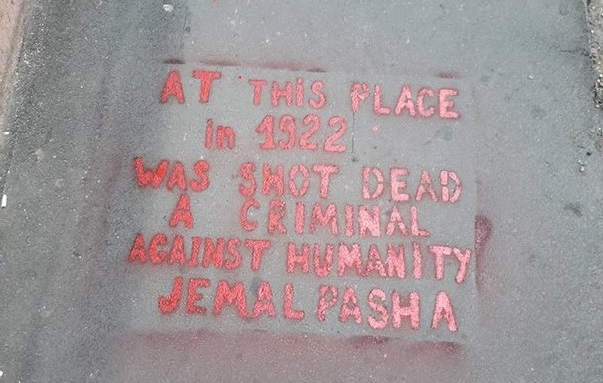 AT THIS PLACE
in 1922
WAS SHOT DEAD
A CRIMINAL
AGAINST HUMANITY
JEMAL PASHA